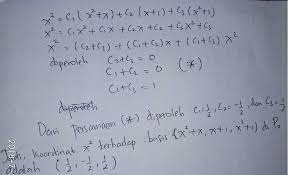 x² = C₁ (x²+x) + C₂ (x+1) + C₃ (x²+1)
x² = C₁x² + C₁x + C₂x + C₂ + C₃x² + C₃
x² = (C₂+C₃) + (C₁+C₂)x + (C₁+C₃) x²
diperoleh C₂+C₃ = 0
C₁+C₂ = 0 (*)
C₁+C₃ = 1
diperoleh
Dari persamaan (*) diperoleh C₁=½, C₂=-½, dan C₃=½
Jadi, koordinat x² terhadap basis {x²+x, x+1, x²+1} di P₂
adalah (½, -½, ½)